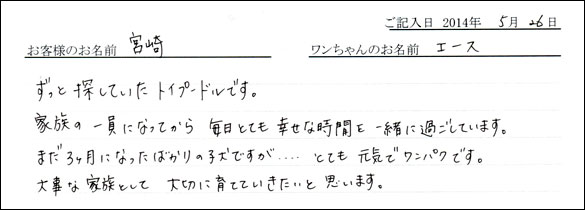 ご記入日 2014年 5月 26日
お客様のお名前 宮崎 ワンちゃんのお名前 エース
ずっと探していたトイプードルです。
家族の一員になってから 毎日とても幸せな時間を一緒に過ごしています。
まだ3ヶ月になったばかりの子犬ですが.... とても元気でワンパクです。
大事な家族として 大切に育てていきたいと思います。